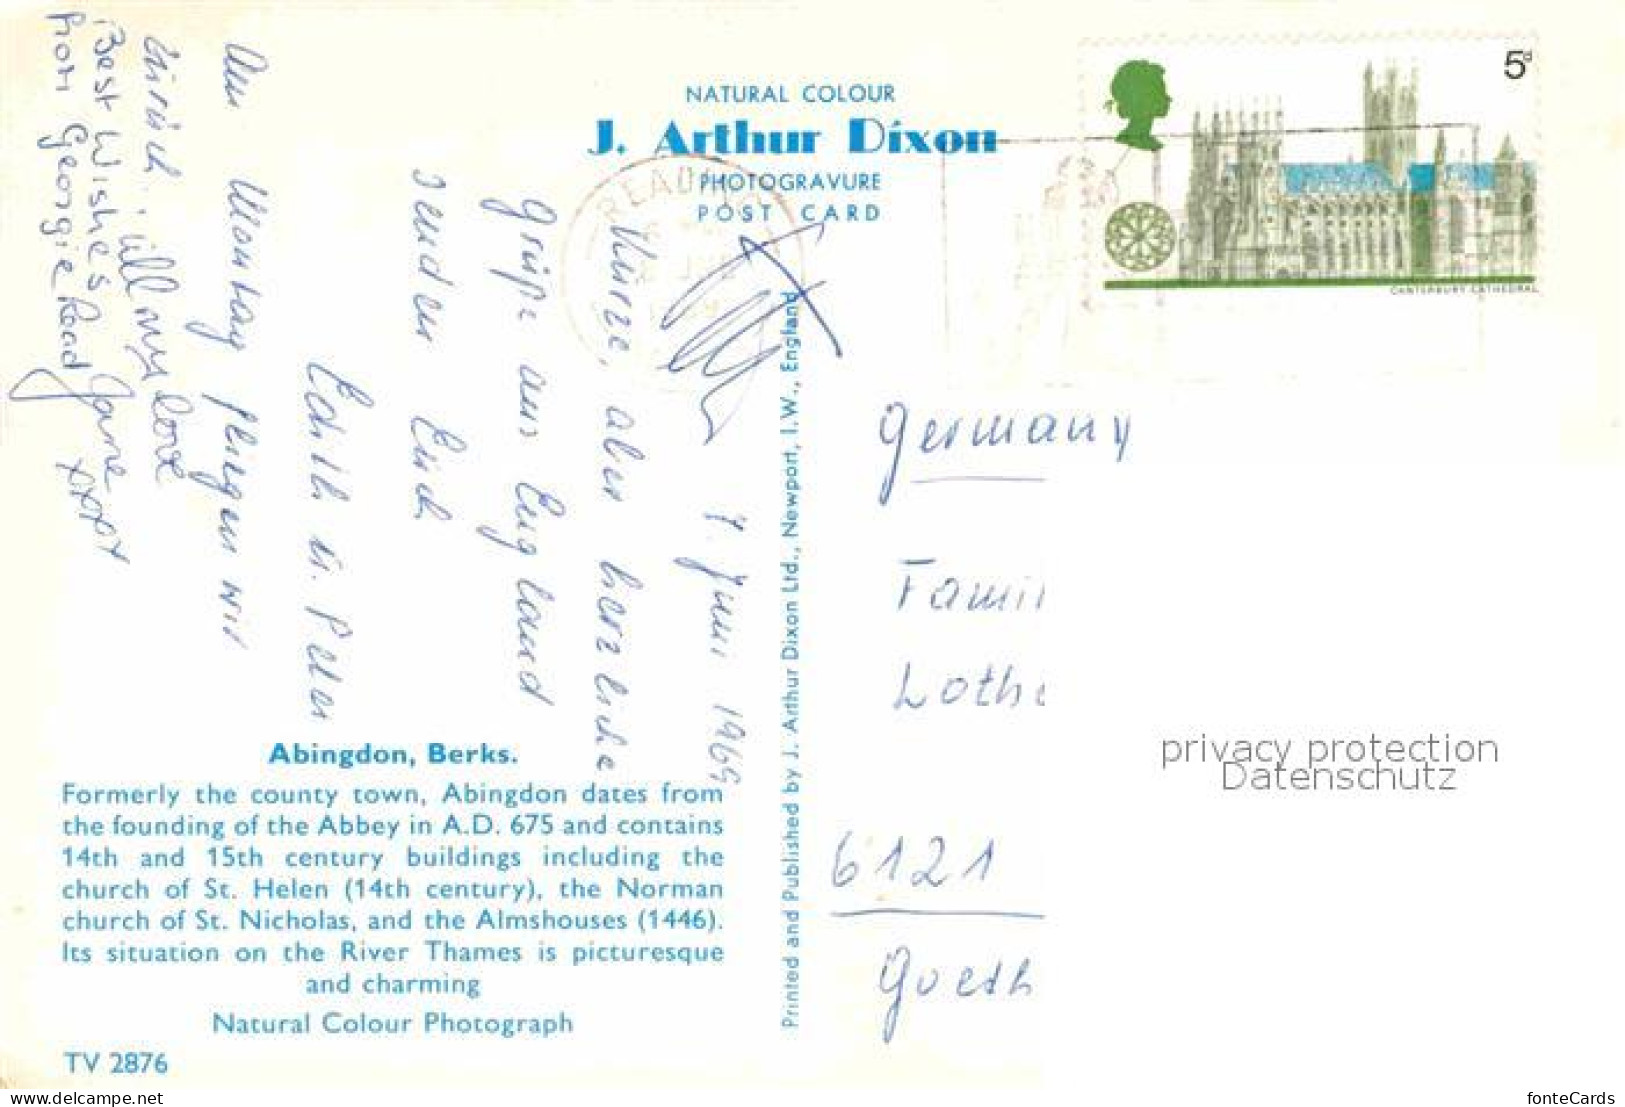 NATURAL COLOUR
J. Arthur Dixon
PHOTOGRAVURE
POST CARD
5d
CANTERBURY CATHEDRAL
READING
7. Juni 1969
Kurze, aber herzliche
Grüße aus England
senden Euch
Edith u. Peter
Am Montag fliegen wir
zurück.
All my love
Best Wishes Jane xxxx
from Georgie Road
Germany
Famil
Loth
6121
Goeth
Abingdon, Berks.
Formerly the county town, Abingdon dates from
the founding of the Abbey in A.D. 675 and contains
14th and 15th century buildings including the
church of St. Helen (14th century), the Norman
church of St. Nicholas, and the Almshouses (1446).
Its situation on the River Thames is picturesque
and charming
Natural Colour Photograph
TV 2876
Printed and Published by J. Arthur Dixon Ltd., Newport, I.W., England
privacy protection
Datenschutz
fonteCards